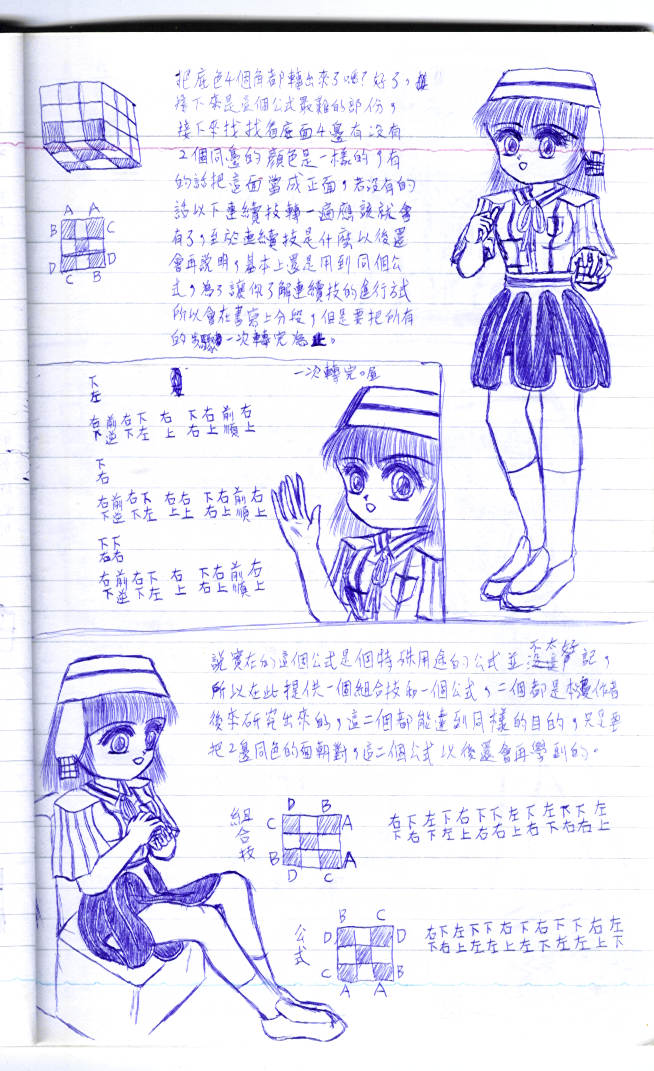 把底色4個角都轉出來了嗎?好了,
接下來是這個公式最難的部份,
接下來找找看底面4邊有沒有
2個同邊的顏色是一樣的,有
的話把這面當成正面,若沒有的
話以下連續技轉一遍應該就會
有了,至於連續技是什麼以後還
會再說明,基本上還是用到同個公
式,為了讓你了解連續技的進行方式
所以會在書寫上分段,但是要把所有
的步驟一次轉完為止。
A A
B C
D D
C B
一次轉完。
下
左
右 前 右 下 右 下 右 前 右
下 逆 下 左 上 右 上 順 上
下
右
右 前 右 下 右 右 下 右 前 右
下 逆 下 左 上 上 右 上 順 上
下 下
右 右
右 前 右 下 右 下 右 前 右
下 逆 下 左 上 右 上 順 上
說實在的這個公式是個特殊用途的公式並不太好記,
所以在此提供一個組合技和一個公式,二個都是本書作者
後來研究出來的,這二個都能達到同樣的目的,只是要
把2邊同色的面朝對,這二個公式以後還會再學到的。
組合技
D B
C A
B A
D C
右 下 左 下 右 下 下 左 下 左 下 下 左
下 右 下 左 上 右 右 上 右 下 右 右 上
公式
B C
D D
C B
A A
右 下 左 下 下 右 下 右 下 下 右 左
下 右 上 左 左 上 左 下 左 左 上 下